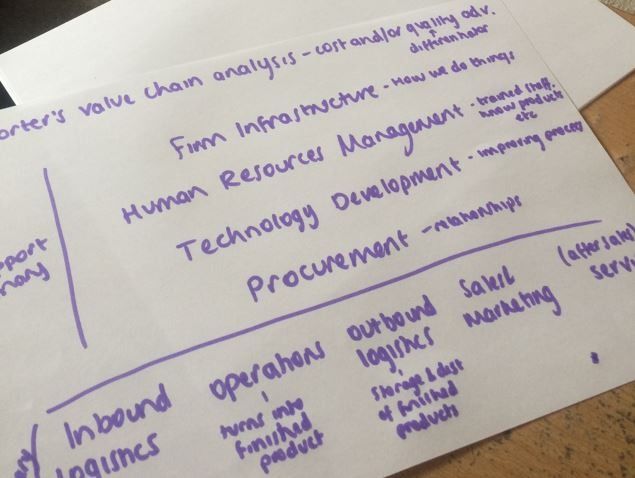 orter's value chain analysis - cost and/or quality adv.
differentiator
Firm Infrastructure - How we do things
Human Resources Management - trained staff,
know products
etc
Technology Development - improving process
Procurement - relationships
pport
Inbound
logistics
operations
turns into
finished
product
outbound
logistics
storage & dist
of finished
products
Sales &
Marketing
(after sales)
servi